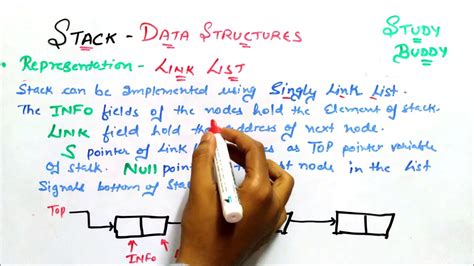 STACK - DATA STRUCTURES
STUDY
BUDDY
• Representation - LINK LIST
Stack can be Implemented using Singly Link List.
The INFO fields of the nodes hold the Element of stack.
LINK field hold the address of next node.
S pointer of Link as TOP pointer variable
of stack. Null node in the List
Signals bottom of Stac
TOP
INFO